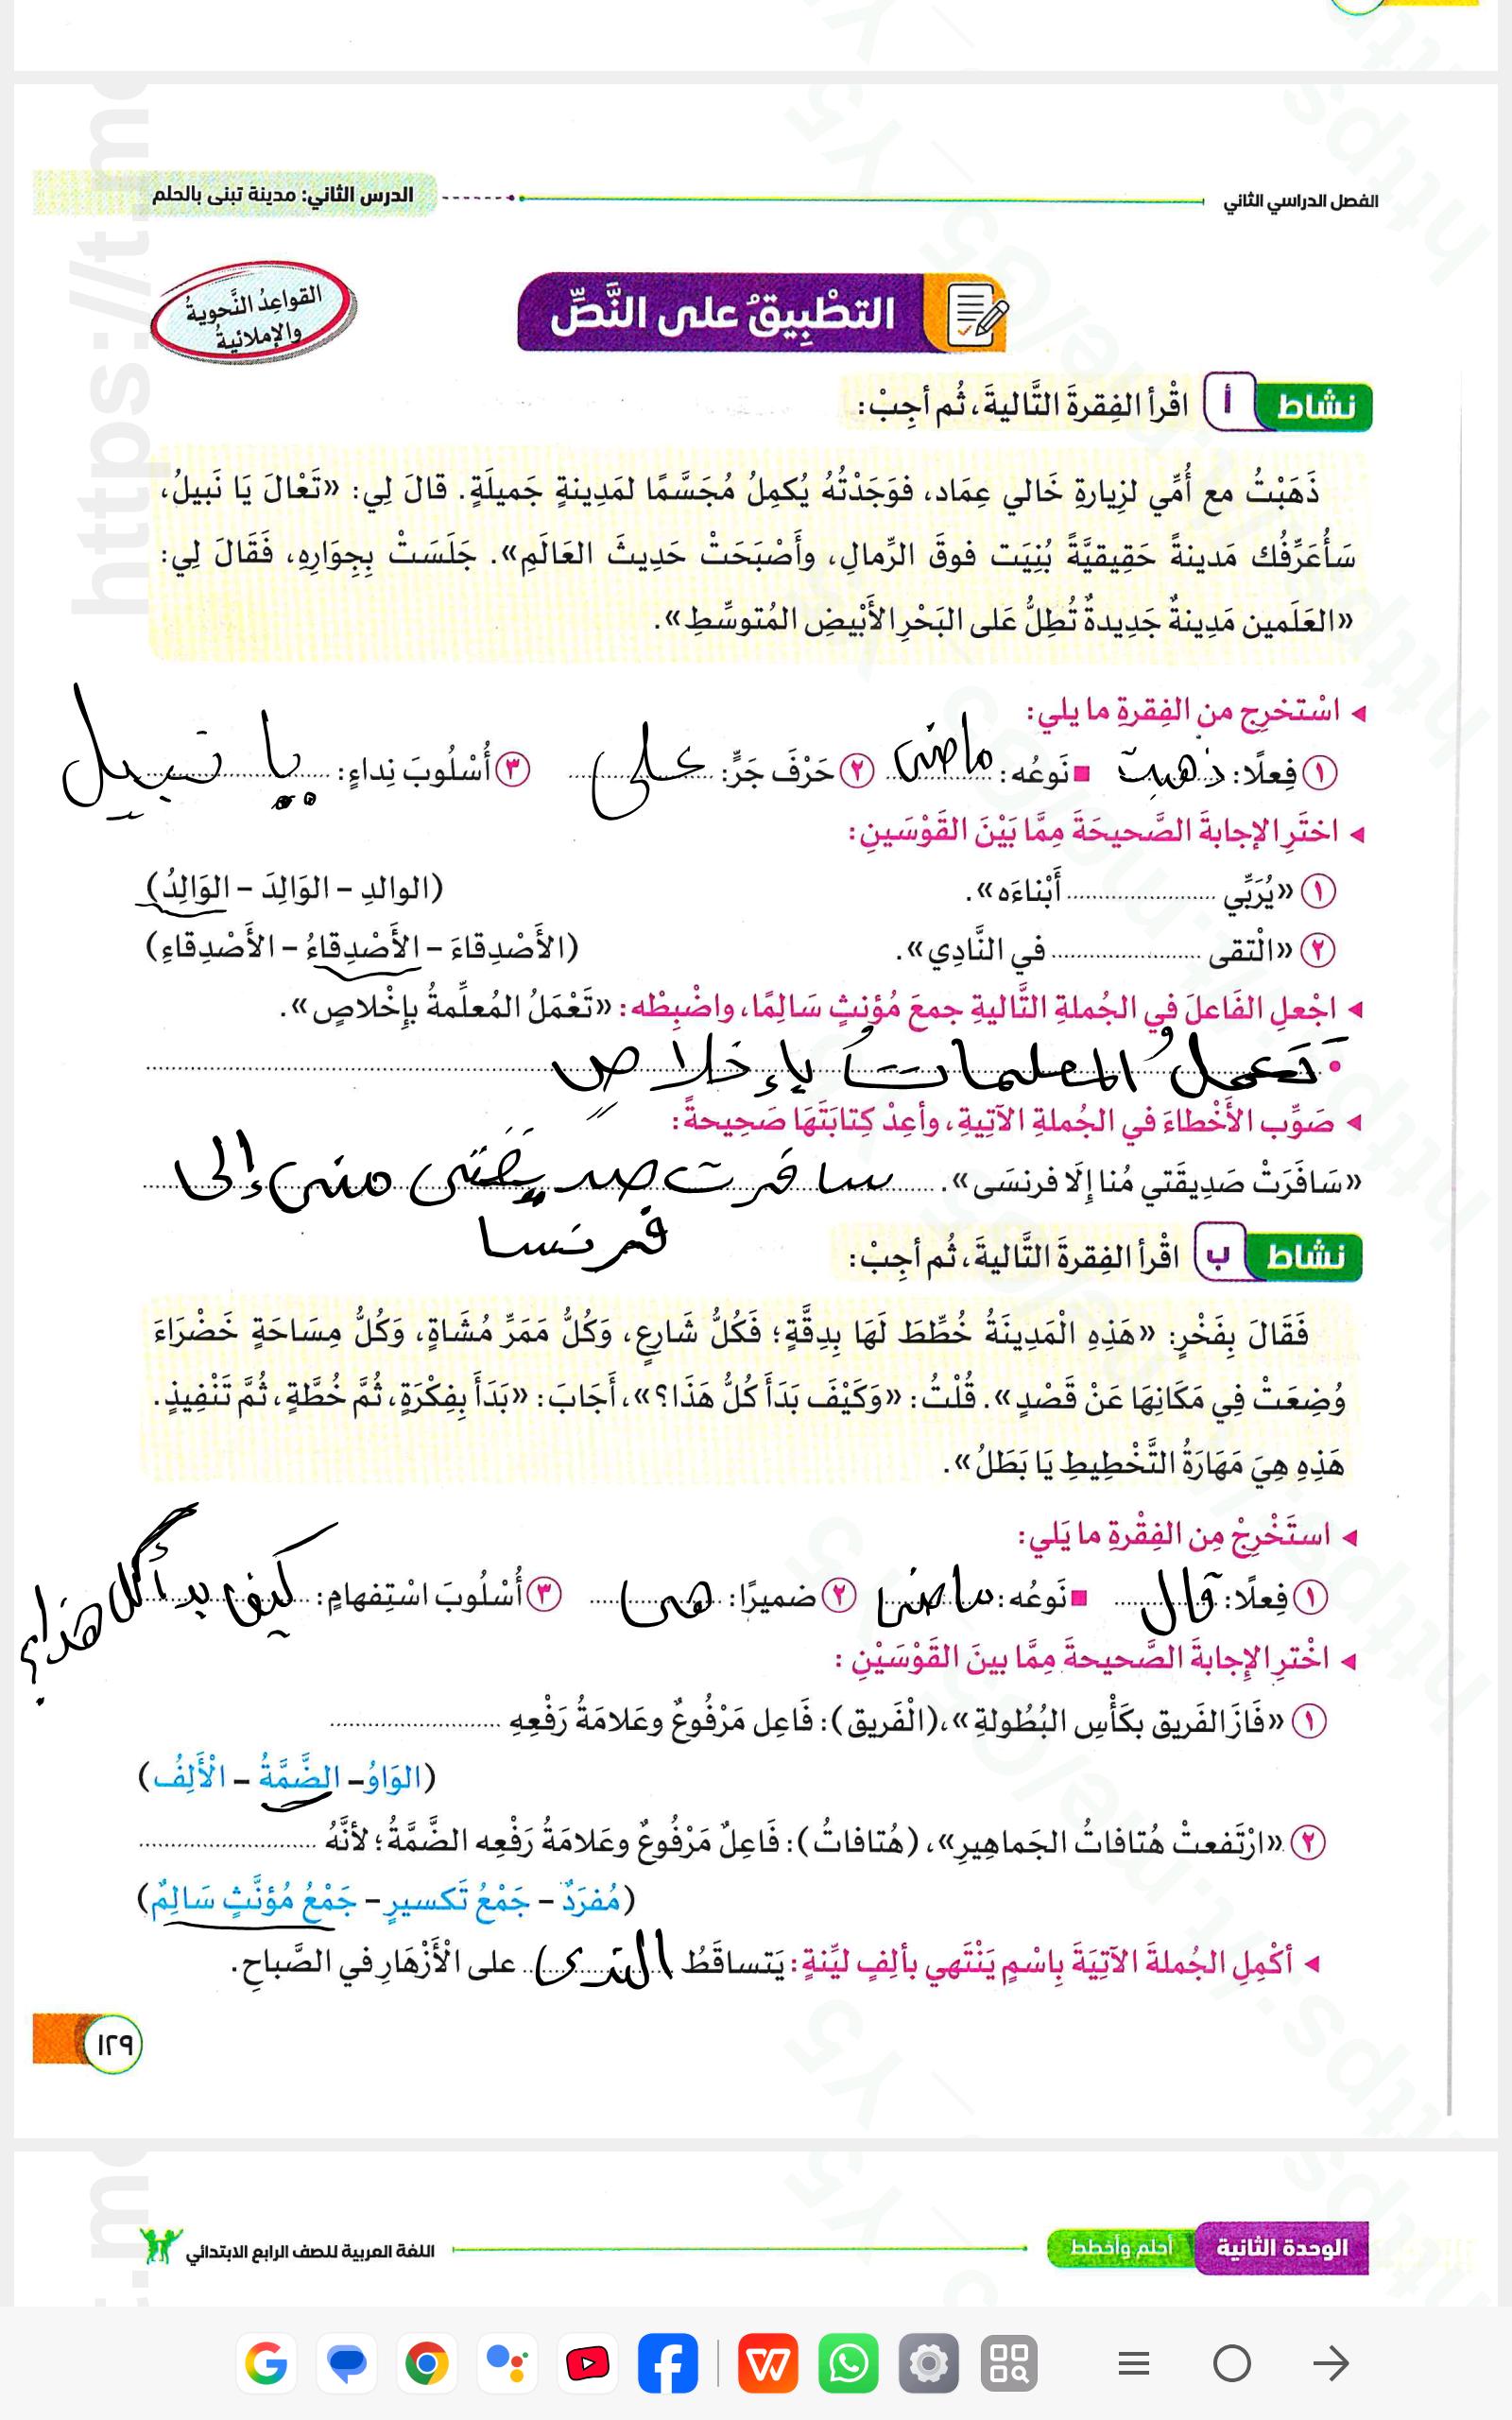 الفصل الدراسي الثاني
الدرس الثاني: مدينة تبنى بالحلم
القواعِدُ النَّحويةُ
والإملائيةُ
التطْبِيقُ على النَّصِّ
نشاط أ اقْرأ الفِقرةَ التَّاليةَ، ثُم أجِبْ:
ذَهَبْتُ مع أُمِّي لزِيارةِ خَالي عِمَاد، فوَجَدْتُهُ يُكمِلُ مُجَسَّمًا لمَدِينةٍ جَميلَةٍ. قالَ لِي: «تَعْالَ يَا نَبيلُ،
سَأُعَرِّفُك مَدينةً حَقِيقيَّةً بُنِيَت فوقَ الرِّمالِ، وأَصْبَحَتْ حَدِيثَ العَالَمِ». جَلَسَتْ بِجِوَارِهِ، فَقَالَ لِي:
«العَلَمين مَدِينةٌ جَدِيدةٌ تُطِلُّ عَلى البَحْرِ الأَبْيضِ المُتوسِّطِ».
اسْتخرِج من الفِقرةِ ما يلي:
١ فِعلًا: ذهبت نَوعُه: ماضى ٢ حَرْفَ جَرٍّ: على ٣ أُسْلُوبَ نِداءٍ: يا نبيل
اختَرِ الإجابةَ الصَّحيحَةَ مِمَّا بَيْنَ القَوْسَينِ:
١ «يُرَبِّي ........ أَبْناءَه». (الوالدِ – الوَالِدَ – الوَالِدُ)
٢ «الْتقى ........ في النَّادِي». (الأَصْدِقاءَ – الأَصْدِقاءُ – الأَصْدِقاءِ)
اجْعلِ الفَاعلَ في الجُملةِ التَّاليةِ جمعَ مُؤنثٍ سَالِمًا، واضْبِطْه: «تَعْمَلُ المُعلِّمةُ بإخْلاصٍ».
تَعملُ المعلماتُ بإخلاصٍ
صَوِّب الأَخْطاءَ في الجُملةِ الآتِيةِ، وأعِدْ كِتابَتَهَا صَحِيحةً:
«سَافَرَتْ صَدِيقَتي مُنا إلَا فرنسَى». سافرت صديقتى منى إلى
فرنسا
نشاط ب اقْرأ الفِقرةَ التَّاليةَ، ثُم أجِبْ:
فَقَالَ بِفَخْرٍ: «هَذِهِ الْمَدِينَةُ خُطِّطَ لَهَا بِدِقَّةٍ؛ فَكُلُّ شَارِعٍ، وَكُلُّ مَمَرِّ مُشَاةٍ، وَكُلُّ مِسَاحَةٍ خَضْرَاءَ
وُضِعَتْ فِي مَكَانِهَا عَنْ قَصْدٍ». قُلْتُ: «وَكَيْفَ بَدَأَ كُلُّ هَذَا؟»، أَجَابَ: «بَدَأَ بِفِكْرَةٍ، ثُمَّ خُطَّةٍ، ثُمَّ تَنْفِيذٍ.
هَذِهِ هِيَ مَهَارَةُ التَّخْطِيطِ يَا بَطَلُ».
استَخْرِجْ مِن الفِقْرةِ ما يَلي:
١ فِعلًا: قال نَوعُه: ماضى ٢ ضميرًا: هى ٣ أُسْلُوبَ اسْتِفهامٍ: كيف بدأ كل هذا؟
اخْترِ الإِجابةَ الصَّحيحةَ مِمَّا بينَ القَوْسَيْنِ :
١ «فَازَ الفَريق بكَأْسِ البُطُولةِ»، (الْفَريق): فَاعِل مَرْفُوعٌ وعَلامَةُ رَفْعِهِ ........
(الوَاوُ– الضَّمَّةُ – الْأَلِفُ)
٢ «ارْتَفعتْ هُتافاتُ الجَماهِيرِ»، (هُتافاتُ): فَاعِلٌ مَرْفُوعٌ وعَلامَةُ رَفْعِه الضَّمَّةُ؛ لأنَّهُ ........
(مُفرَدٌ – جَمْعُ تَكسيرٍ – جَمْعُ مُؤنَّثٍ سَالِمٌ)
أكْمِلِ الجُملةَ الآتِيَةَ بِاسْمٍ يَنْتَهي بألِفٍ ليِّنةٍ: يَتساقَطُ الندى على الْأَزْهَارِ في الصَّباحِ.
١٢٩
الوحدة الثانية أحلم وأخطط
اللغة العربية للصف الرابع الابتدائي